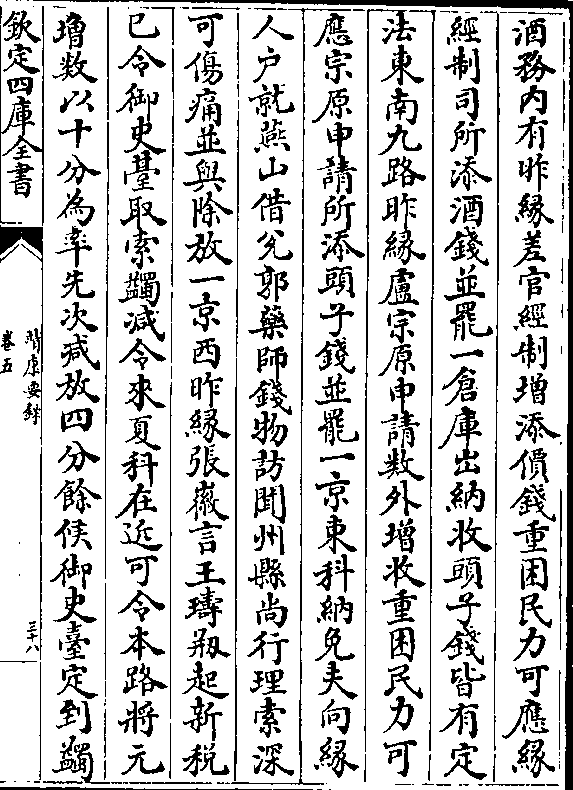 酒務内有昨緣差官經制增添價錢重困民力可應緣
經制司所添酒錢並罷一倉庫出納收頭子錢皆有定
法東南九路昨緣盧宗原申請数外增收重困民力可
應宗原申請所添頭子錢並罷一京東科納免夫向緣
人户就燕山借兊郭藥師錢物訪聞州縣尚行理索深
可傷痛並與除放一京西昨緣張徽言王璹剏起新税
已令御史臺取索蠲减令來夏科在近可令本路將元
增数以十分為率先次减放四分餘候御史臺定到蠲
欽定四庫全書
靖康要録
卷五
三十八